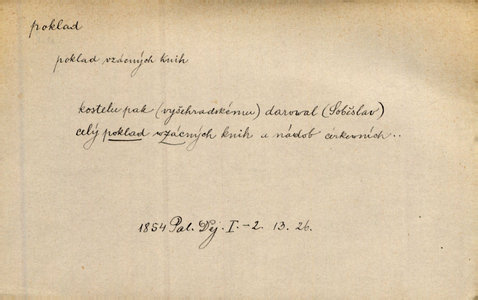 poklad
poklad vzácných knih
kostelu pak (vyšehradskému) daroval (Soběslav)
celý poklad vzácných knih a nádob církevních..
1854 Pal. Děj. I.-2. 13. 26.